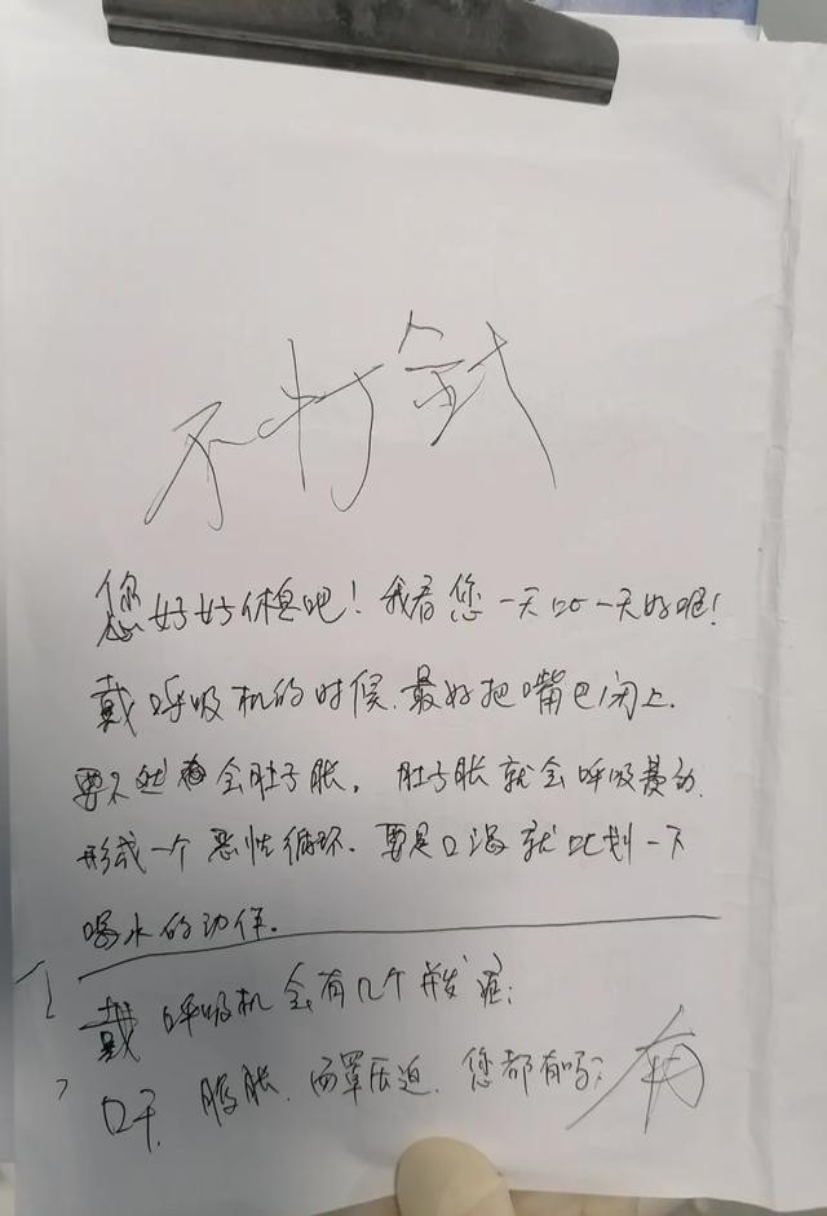 不打针
您好好休息吧！我看您一天比一天好呢！
戴呼吸机的时候.最好把嘴巴闭上.
要不然会肚子胀。肚子胀就会呼吸费劲.
形成一个恶性循环.要是口渴就比划一下
喝水的动作.
戴呼吸机会有几个并发症：
口干.腹胀.面罩压迫.您都有吗？有